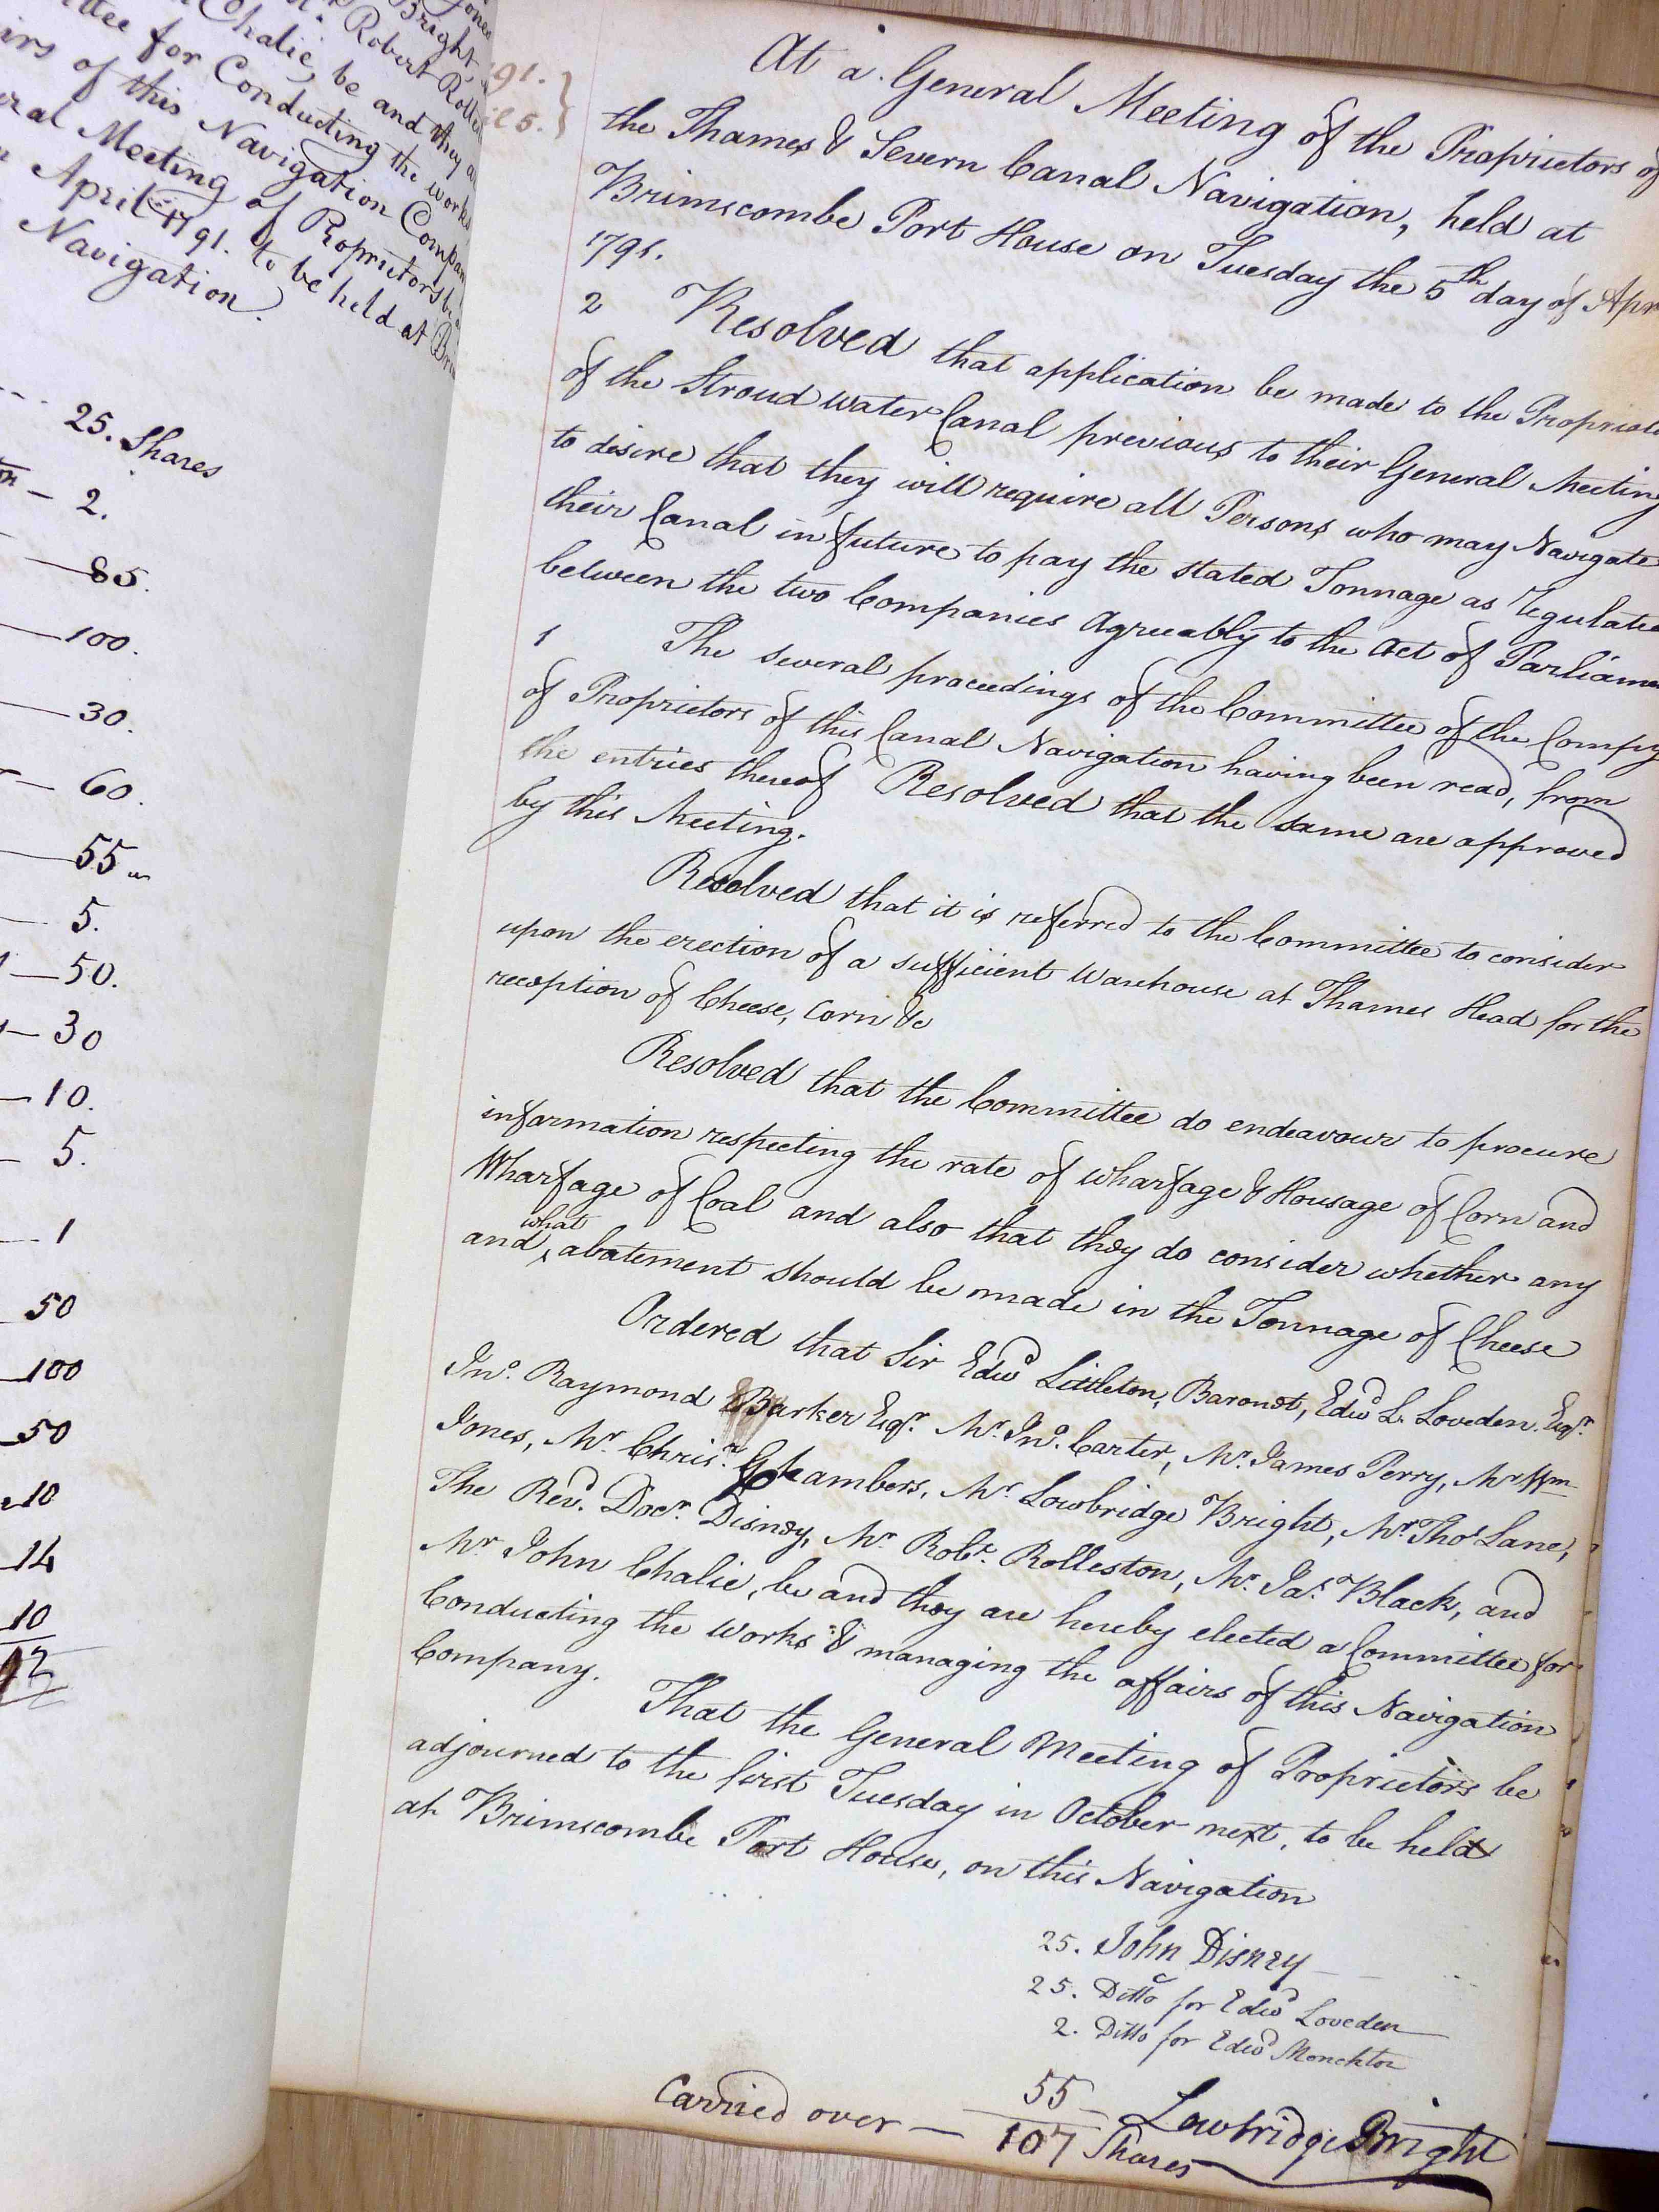 Jones
Bright,
Robert Rolles
Chalie, be and they a
ttee for Conducting the works
irs of this Navigation Compan
ral Meeting of Proprietors be
April 1791. to be held at Bri
Navigation.
25. Shares
2.
85.
100.
30.
60.
55
5.
50.
30
10.
5.
1
50
100
50
10
14
10
12
91.
il 5.
At a General Meeting of the Proprietors of
the Thames & Severn Canal Navigation, held at
Brimscombe Port House on Tuesday the 5th day of Apr
1791.
2 Resolved that application be made to the Propriet
of the Stroudwater Canal previous to their General Meeting
to desire that they will require all Persons who may Navigate
their Canal in future to pay the stated Tonnage as regulate
between the two Companies Agreeably to the Act of Parliame
1 The several proceedings of the Committee of the Compy
of Proprietors of this Canal Navigation having been read, from
the entries thereof Resolved that the same are approved
by this Meeting.
Resolved that it is referred to the Committee to consider
upon the erection of a sufficient Warehouse at Thames Head for the
reception of Cheese, Corn &c
Resolved that the Committee do endeavour to procure
information respecting the rate of wharfage & Housage of Corn and
Wharfage of Coal and also that they do consider whether any
and what abatement should be made in the Tonnage of Cheese
Ordered that Sir Edwd Littleton, Baronet, Edwd L. Loveden. Esqr.
Jno. Raymond Barker Esqr. Mr. Jno. Carter, Mr. James Perry, Mr Wm
Jones, Mr Chrisr. Chambers, Mr Lowbridge Bright, Mr. Thos Lane,
The Revd. Docr. Disney, Mr Robt. Rolleston, Mr. Jas. Black, and
Mr John Chalie, be and they are hereby elected a Committee for
Conducting the Works & managing the affairs of this Navigation
Company.
That the General Meeting of Proprietors be
adjourned to the first Tuesday in October next, to be held
at Brimscombe Port House, on this Navigation
25. John Disney
25. Ditto for Edwd Loveden
2. Ditto for Edwd Monckton
55 Lowbridge Bright
Carried over — 107 Shares